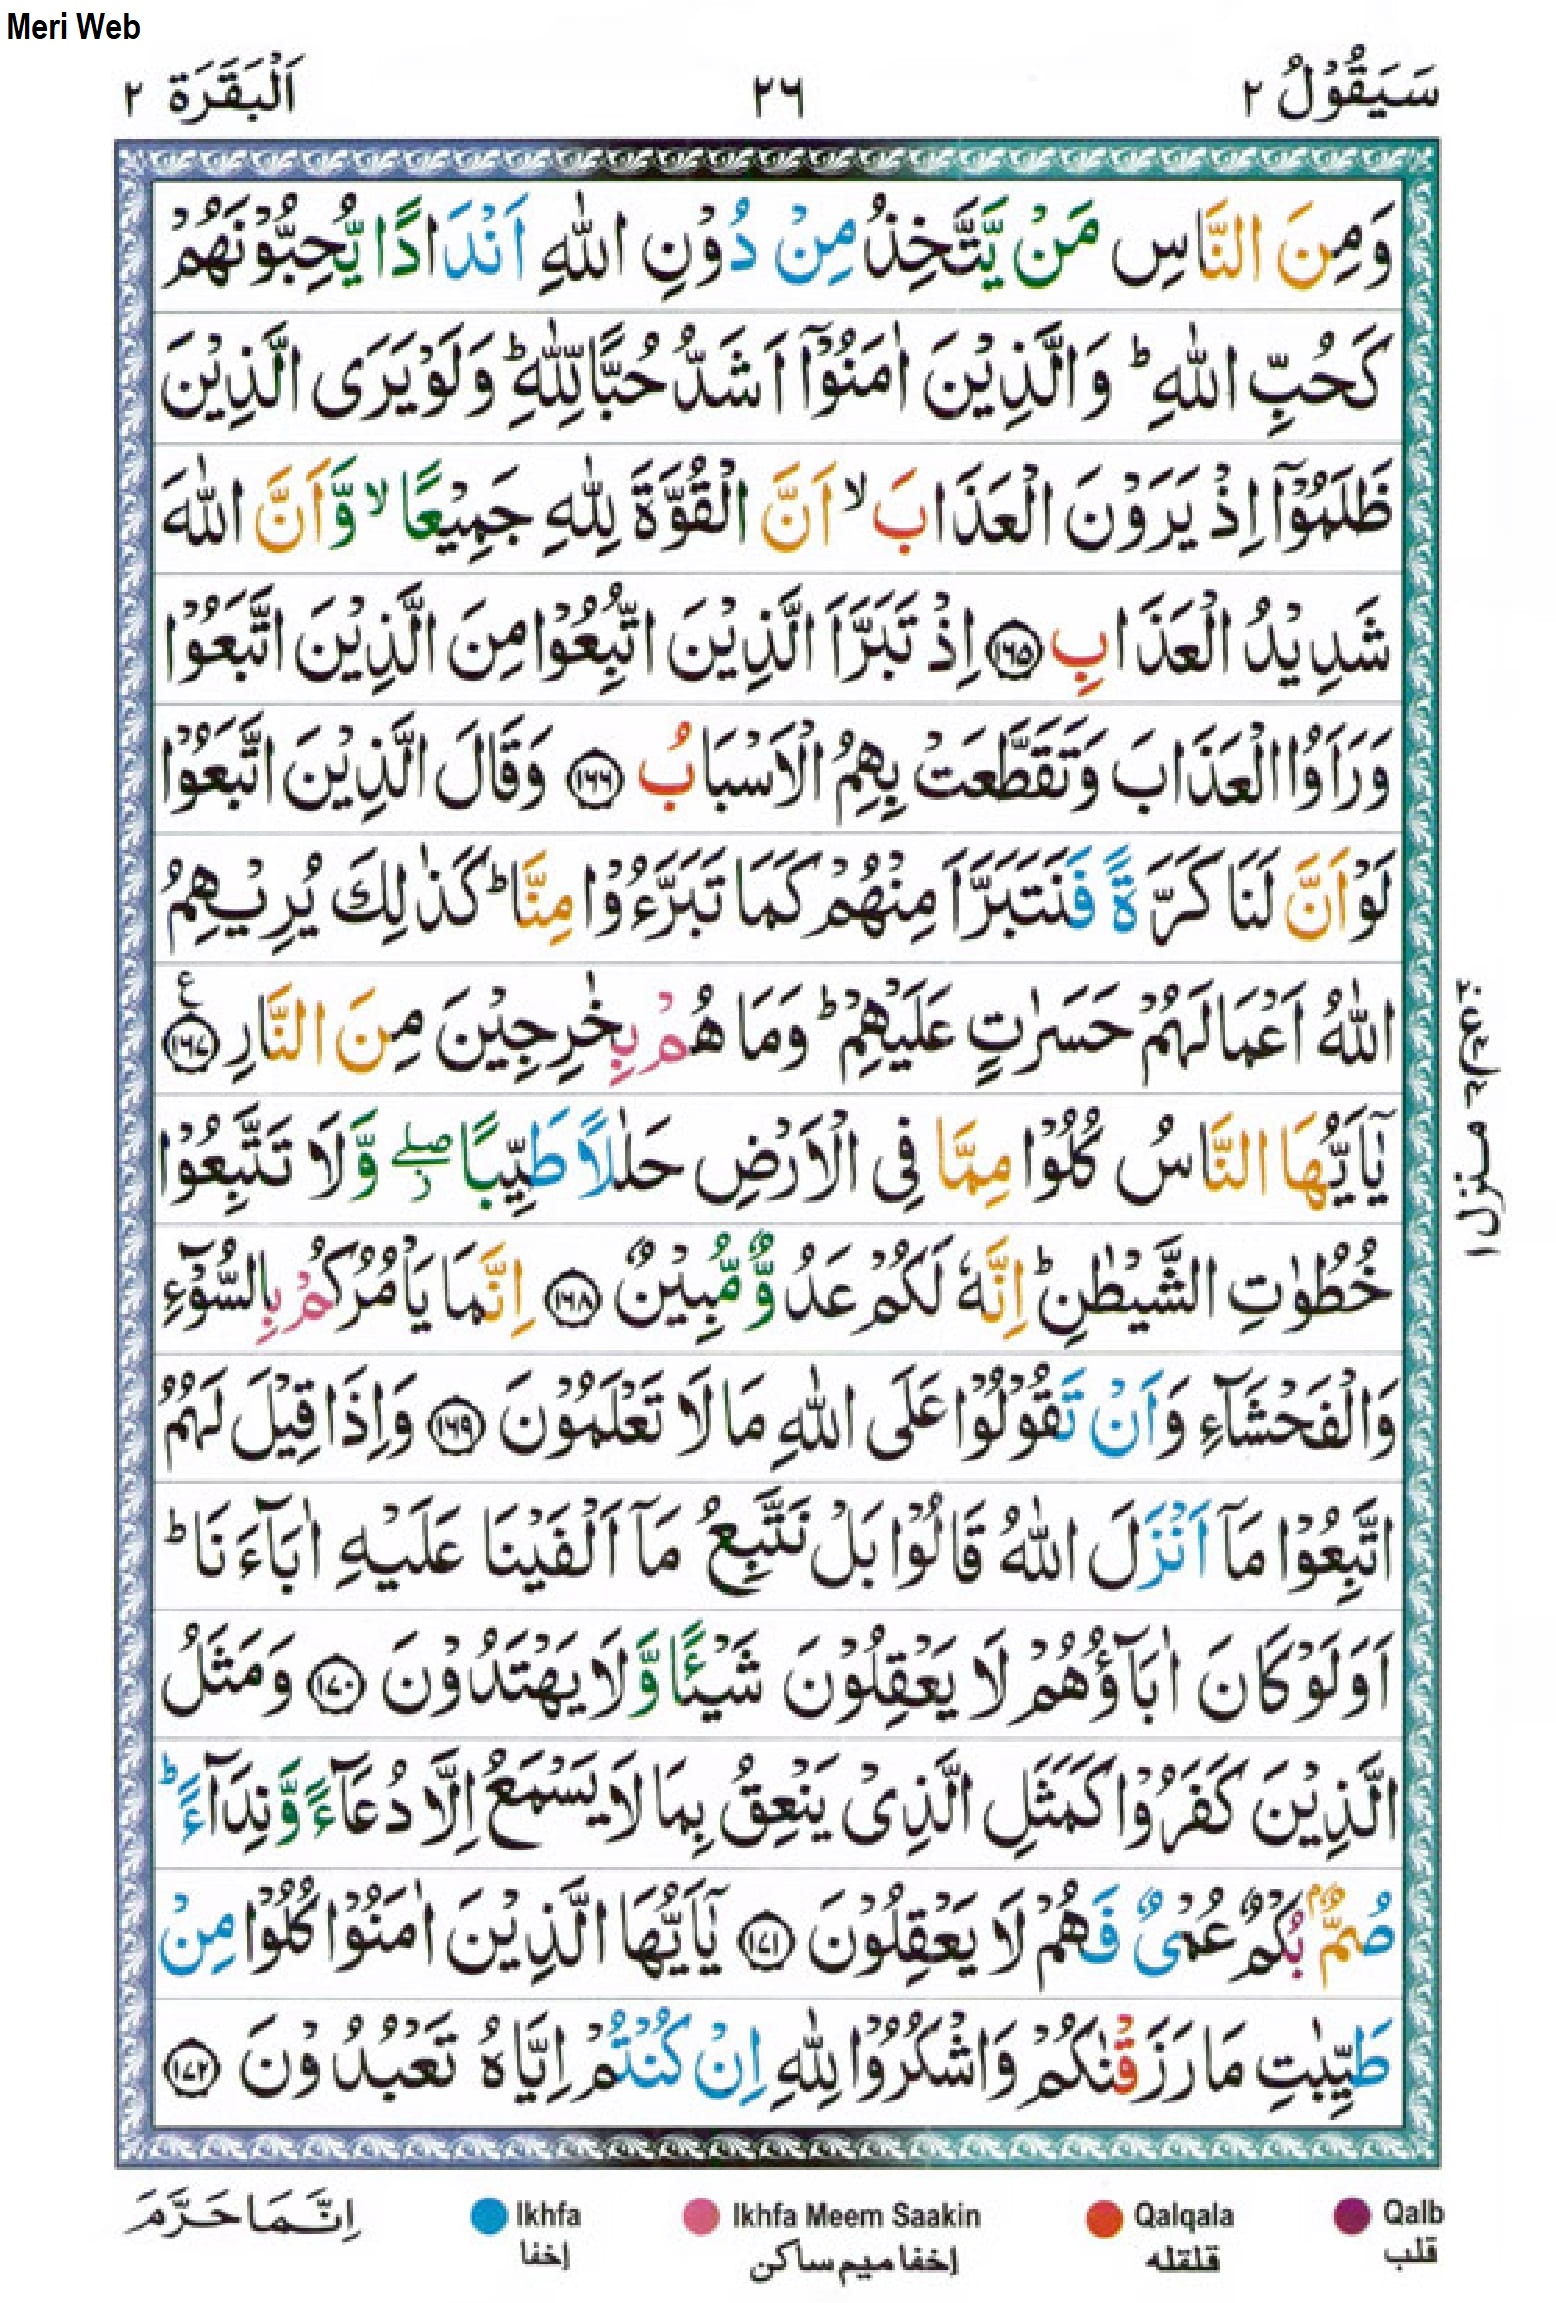 Meri Web
سَیَقُوۡلُ ٢
٢٦
اَلۡبَقَرَة ٢
وَمِنَ النَّاسِ مَنۡ یَّتَّخِذُ مِنۡ دُوۡنِ اللّٰهِ اَنۡدَادًا یُّحِبُّوۡنَهُمۡ
كَحُبِّ اللّٰهِ ؕ وَالَّذِیۡنَ اٰمَنُوۡۤا اَشَدُّ حُبًّا لِّلّٰهِ ؕ وَلَوۡ یَرَی الَّذِیۡنَ
ظَلَمُوۡۤا اِذۡ یَرَوۡنَ الۡعَذَابَ ۙ اَنَّ الۡقُوَّةَ لِلّٰهِ جَمِیۡعًا ۙ وَّاَنَّ اللّٰهَ
شَدِیۡدُ الۡعَذَابِ ﴿١٦٥﴾ اِذۡ تَبَرَّاَ الَّذِیۡنَ اتُّبِعُوۡا مِنَ الَّذِیۡنَ اتَّبَعُوۡا
وَرَاَوُا الۡعَذَابَ وَتَقَطَّعَتۡ بِهِمُ الۡاَسۡبَابُ ﴿١٦٦﴾ وَقَالَ الَّذِیۡنَ اتَّبَعُوۡا
لَوۡ اَنَّ لَنَا كَرَّةً فَنَتَبَرَّاَ مِنۡهُمۡ كَمَا تَبَرَّءُوۡا مِنَّا ؕ كَذٰلِكَ یُرِیۡهِمُ
اللّٰهُ اَعۡمَالَهُمۡ حَسَرٰتٍ عَلَیۡهِمۡ ؕ وَمَا هُمۡ بِخٰرِجِیۡنَ مِنَ النَّارِ ﴿١٦٧﴾ ع
یٰۤاَیُّهَا النَّاسُ كُلُوۡا مِمَّا فِی الۡاَرۡضِ حَلٰلًا طَیِّبًا ۖ وَّلَا تَتَّبِعُوۡا
خُطُوٰتِ الشَّیۡطٰنِ ؕ اِنَّهٗ لَكُمۡ عَدُوٌّ مُّبِیۡنٌ ﴿١٦٨﴾ اِنَّمَا یَاۡمُرُكُمۡ بِالسُّوۡٓءِ
وَالۡفَحۡشَآءِ وَاَنۡ تَقُوۡلُوۡا عَلَی اللّٰهِ مَا لَا تَعۡلَمُوۡنَ ﴿١٦٩﴾ وَاِذَا قِیۡلَ لَهُمُ
اتَّبِعُوۡا مَاۤ اَنۡزَلَ اللّٰهُ قَالُوۡا بَلۡ نَتَّبِعُ مَاۤ اَلۡفَیۡنَا عَلَیۡهِ اٰبَآءَنَا ؕ
اَوَلَوۡ كَانَ اٰبَآؤُهُمۡ لَا یَعۡقِلُوۡنَ شَیۡـًٔا وَّلَا یَهۡتَدُوۡنَ ﴿١٧٠﴾ وَمَثَلُ
الَّذِیۡنَ كَفَرُوۡا كَمَثَلِ الَّذِیۡ یَنۡعِقُ بِمَا لَا یَسۡمَعُ اِلَّا دُعَآءً وَّنِدَآءً ؕ
صُمٌّۢ بُكۡمٌ عُمۡیٌ فَهُمۡ لَا یَعۡقِلُوۡنَ ﴿١٧١﴾ یٰۤاَیُّهَا الَّذِیۡنَ اٰمَنُوۡا كُلُوۡا مِنۡ
طَیِّبٰتِ مَا رَزَقۡنٰكُمۡ وَاشۡكُرُوۡا لِلّٰهِ اِنۡ كُنۡتُمۡ اِیَّاهُ تَعۡبُدُوۡنَ ﴿١٧٢﴾
منزل ١
اِنَّمَا حَرَّمَ
Ikhfa
Ikhfa Meem Saakin
Qalqala
Qalb
إخفا
إخفا میم ساكن
قلقله
قلب